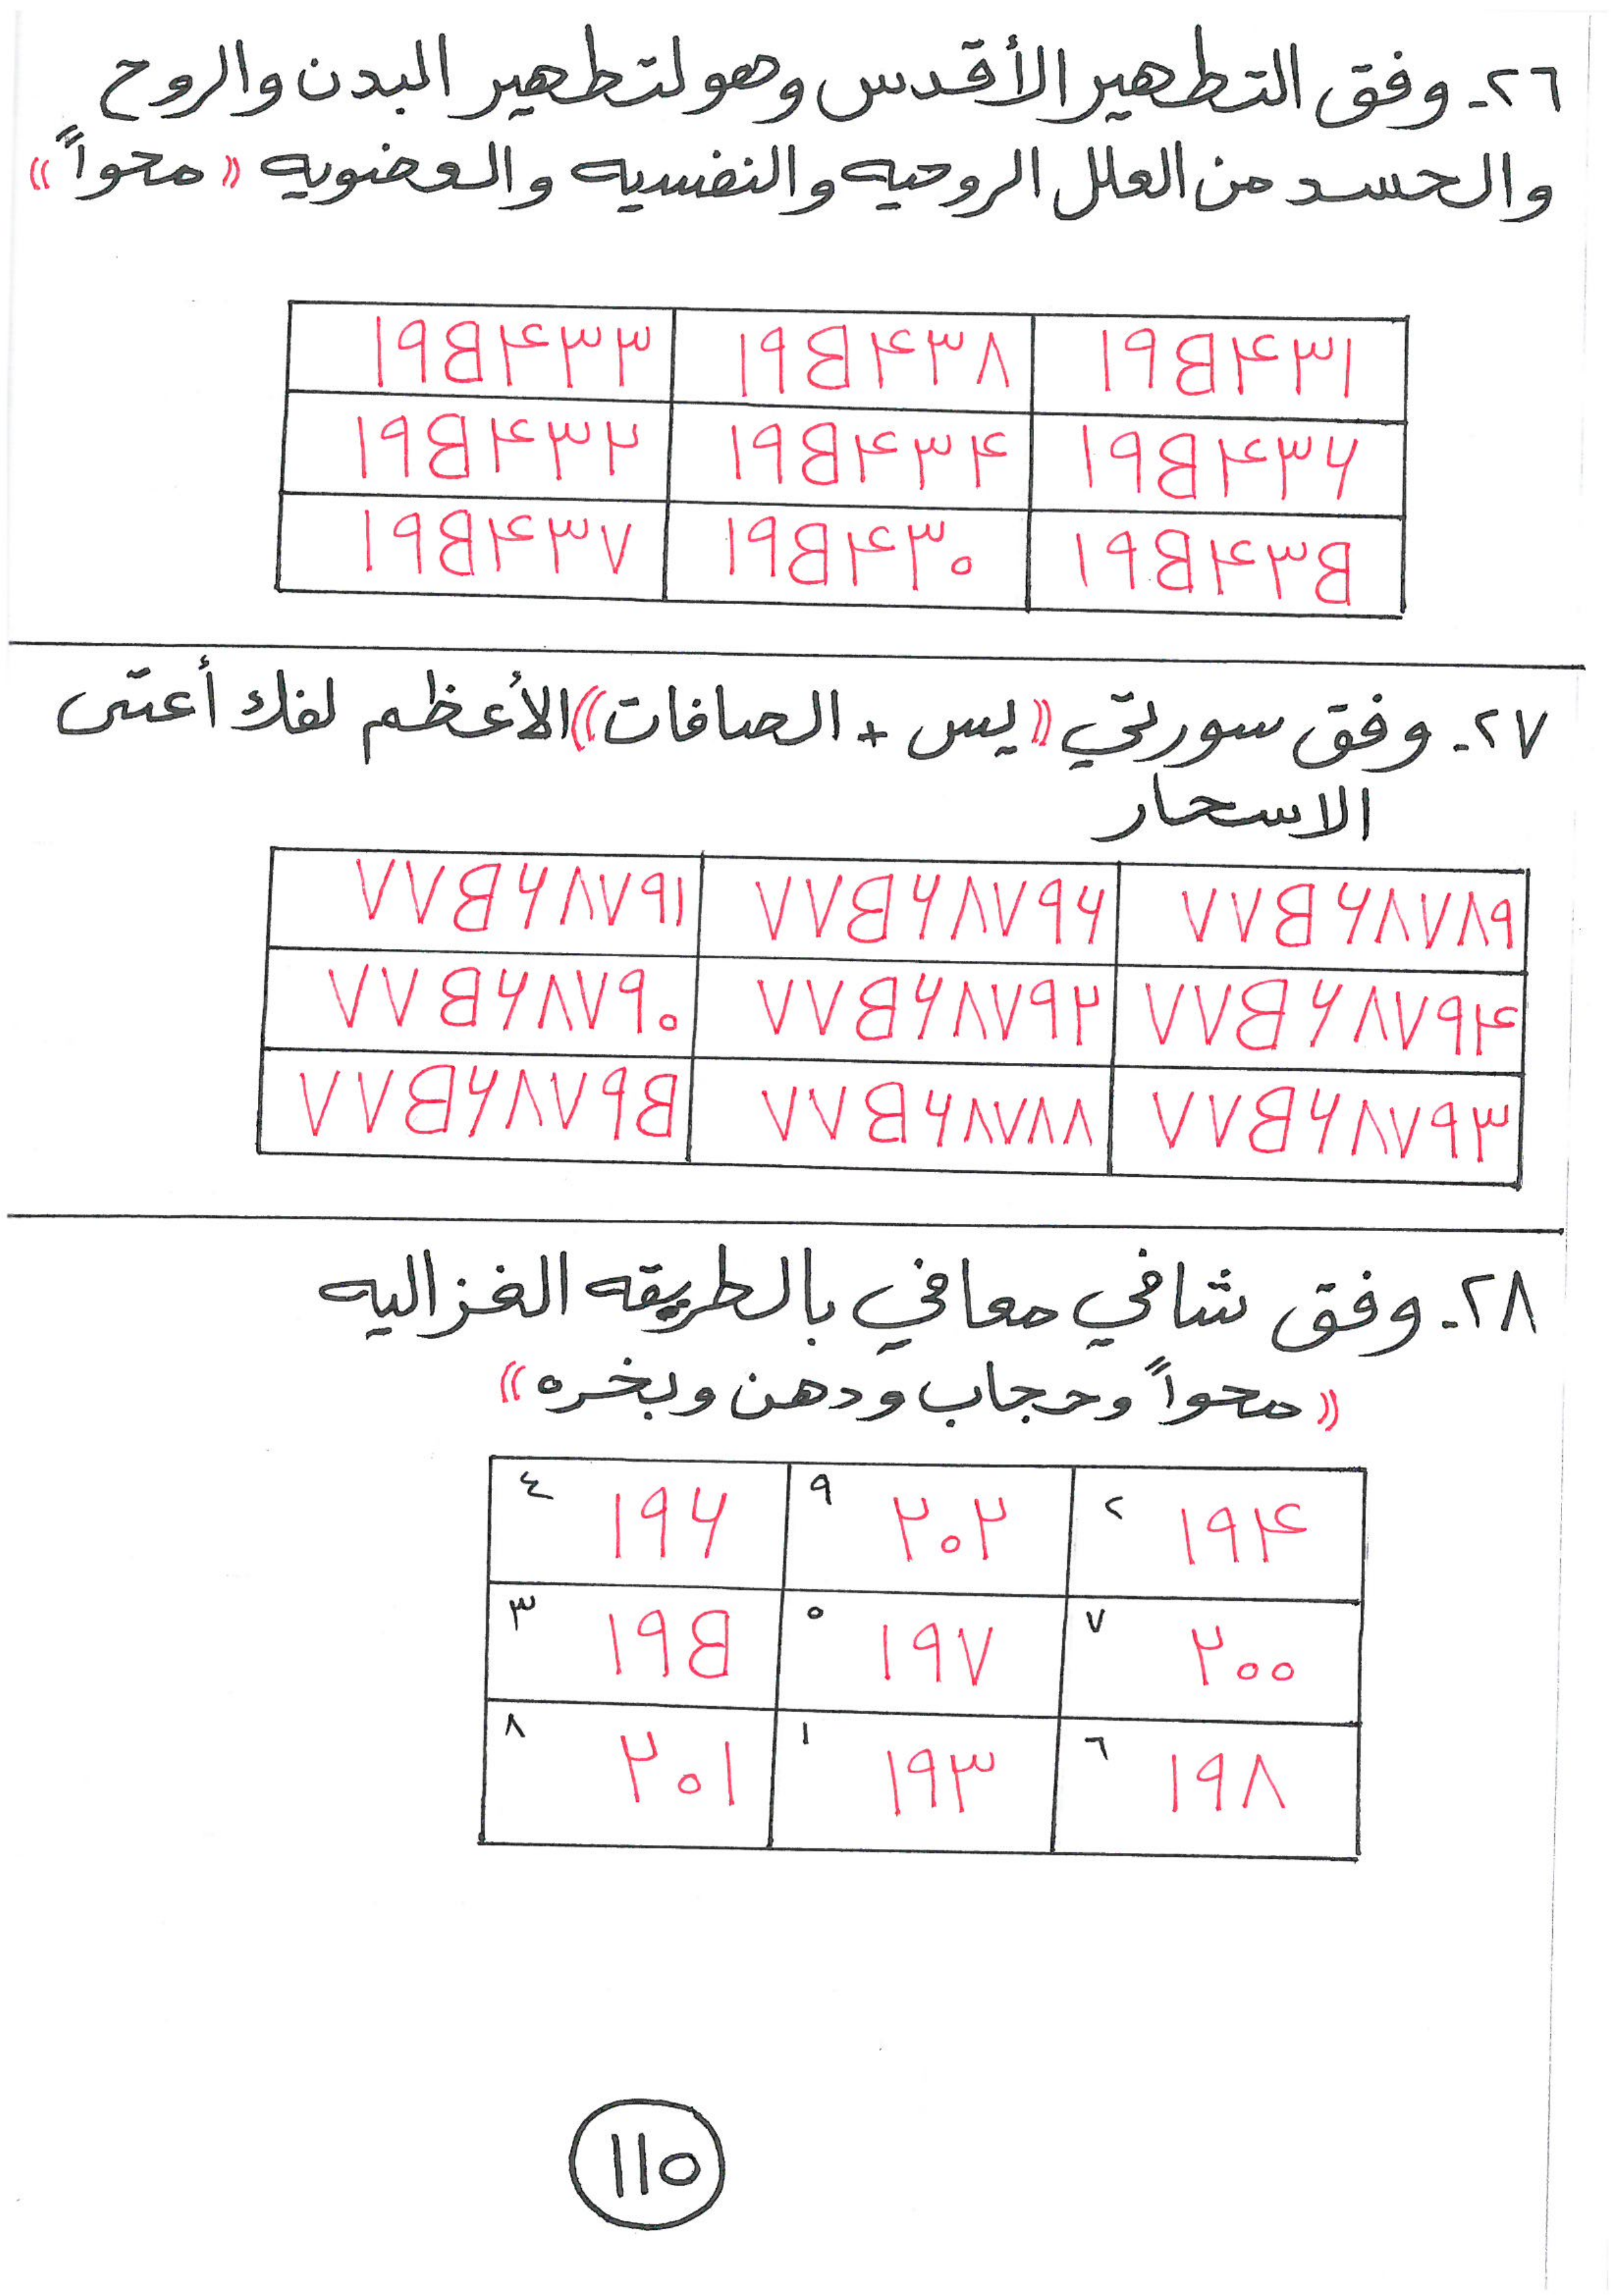 ٢٦- وفق التطهير الأقدس وهو لتطهير البدن والروح
والحسد من العلل الروحيه والنفسيه والعضويه «محواً»
١٩٥٤٣١ ١٩٥٤٣٨ ١٩٥٤٣٣
١٩٥٤٣٦ ١٩٥٤٣٤ ١٩٥٤٣٢
١٩٥٤٣٥ ١٩٥٤٣٠ ١٩٥٤٣٧
٢٧- وفق سورتي «يس + الصافات» الأعظم لفك أعتى
الاسحار
٧٧٥٦٨٧٨٩ ٧٧٥٦٨٧٩٦ ٧٧٥٦٨٧٩١
٧٧٥٦٨٧٩٤ ٧٧٥٦٨٧٩٢ ٧٧٥٦٨٧٩٠
٧٧٥٦٨٧٩٣ ٧٧٥٦٨٧٨٨ ٧٧٥٦٨٧٩٥
٢٨- وفق شافي معافي بالطريقه الغزاليه
«محواً وحجاب ودهن وبخره»
٢ ١٩٤ ٩ ٢٠٢ ٤ ١٩٦
٧ ٢٠٠ ٥ ١٩٧ ٣ ١٩٥
٦ ١٩٨ ١ ١٩٣ ٨ ٢٠١
١١٥